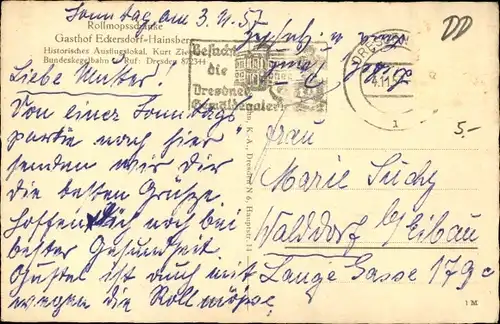 Sonntag am 3. 11. 57
Rollmopsschänke
Gasthof Eckersdorf-Hainsberg
Historisches Ausflugslokal, Kurt
Bundeskegelbahn Ruf: Dresden 872344
Liebe Mutter!
Von einer Sonntags
partie nach hier
senden wir Dir
die besten Grüsse
hoffen Dich noch bei
bester Gesundheit.
ist auch mit
wegen die Rollmöpse
DD
Besucht
die
Dresdner
Gemäldegalerie
DRESDEN
4.11.
5.-
Frau
Marie Suchy
Walddorf b/Eibau
Lange Gasse 179c
K. A., Dresden N 6, Hauptstr. 14
1 M